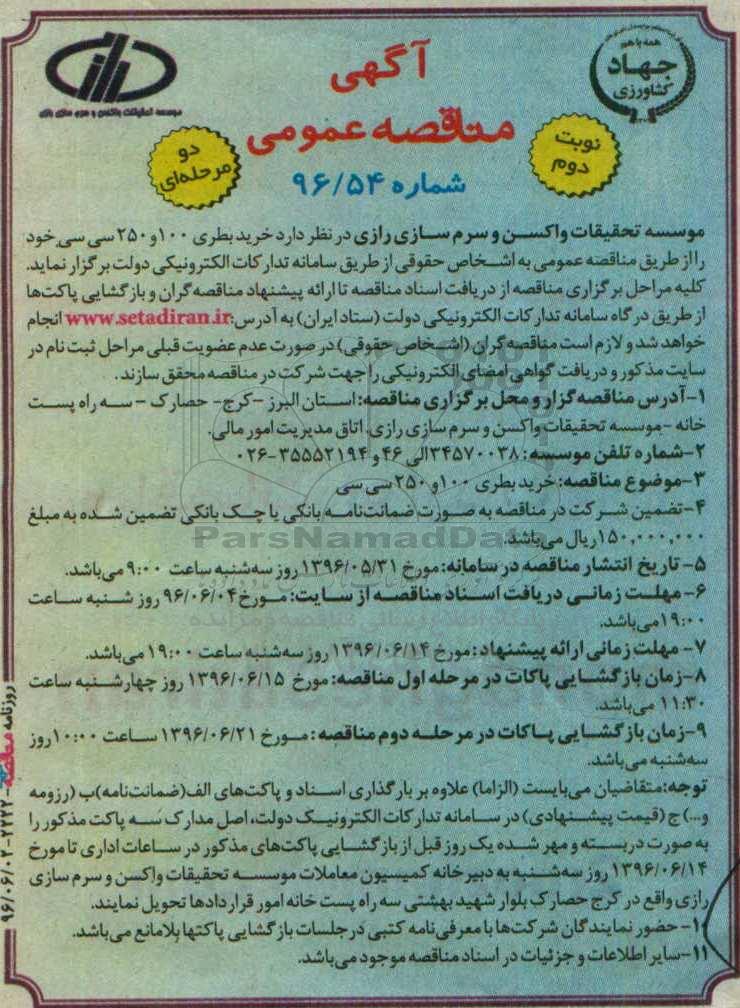 همه با هم
جهاد
کشاورزی
موسسه تحقیقات واکسن و سرم سازی رازی
آگهی
مناقصه عمومی
نوبت
دوم
دو
مرحله‌ای
شماره ۹۶/۵۴
موسسه تحقیقات واکسن و سرم سازی رازی در نظر دارد خرید بطری ۱۰۰ و ۲۵۰ سی سی خود
را از طریق مناقصه عمومی به اشخاص حقوقی از طریق سامانه تدارکات الکترونیکی دولت برگزار نماید.
کلیه مراحل برگزاری مناقصه از دریافت اسناد مناقصه تا ارائه پیشنهاد مناقصه گران و بازگشایی پاکت‌ها
از طریق درگاه سامانه تدارکات الکترونیکی دولت (ستاد ایران) به آدرس: www.setadiran.ir انجام
خواهد شد و لازم است مناقصه گران (اشخاص حقوقی) در صورت عدم عضویت قبلی مراحل ثبت نام در
سایت مذکور و دریافت گواهی امضای الکترونیکی را جهت شرکت در مناقصه محقق سازند.
۱-آدرس مناقصه گزار و محل برگزاری مناقصه: استان البرز -کرج- حصارک - سه راه پست
خانه -موسسه تحقیقات واکسن و سرم سازی رازی. اتاق مدیریت امور مالی.
۲-شماره تلفن موسسه: ۳۴۵۷۰۰۳۸ الی ۴۶ و ۳۵۵۵۲۱۹۴-۰۲۶
۳-موضوع مناقصه: خرید بطری ۱۰۰ و ۲۵۰ سی سی
۴-تضمین شرکت در مناقصه به صورت ضمانت‌نامه بانکی یا چک بانکی تضمین شده به مبلغ
۱۵۰,۰۰۰,۰۰۰ ریال می‌باشد.
۵- تاریخ انتشار مناقصه در سامانه: مورخ ۱۳۹۶/۰۵/۳۱ روز سه‌شنبه ساعت ۹:۰۰ می‌باشد.
۶- مهلت زمانی دریافت اسناد مناقصه از سایت: مورخ ۹۶/۰۶/۰۴ روز شنبه ساعت
۱۹:۰۰ می‌باشد.
۷- مهلت زمانی ارائه پیشنهاد: مورخ ۱۳۹۶/۰۶/۱۴ روز سه‌شنبه ساعت ۱۹:۰۰ می‌باشد.
۸-زمان بازگشایی پاکات در مرحله اول مناقصه: مورخ ۱۳۹۶/۰۶/۱۵ روز چهارشنبه ساعت
۱۱:۳۰ می‌باشد.
۹-زمان بازگشایی پاکات در مرحله دوم مناقصه: مورخ ۱۳۹۶/۰۶/۲۱ ساعت ۱۰:۰۰ روز
سه‌شنبه می‌باشد.
توجه: متقاضیان می‌بایست (الزاما) علاوه بر بارگذاری اسناد و پاکت‌های الف(ضمانت‌نامه)ب (رزومه
و...) ج (قیمت پیشنهادی) در سامانه تدارکات الکترونیک دولت، اصل مدارک سه پاکت مذکور را
به صورت دربسته و مهر شده یک روز قبل از بازگشایی پاکت‌های مذکور در ساعات اداری تا مورخ
۱۳۹۶/۰۶/۱۴ روز سه‌شنبه به دبیرخانه کمیسیون معاملات موسسه تحقیقات واکسن و سرم سازی
رازی واقع در کرج حصارک بلوار شهید بهشتی سه راه پست خانه امور قراردادها تحویل نمایند.
۱۰- حضور نمایندگان شرکت‌ها با معرفی‌نامه کتبی در جلسات بازگشایی پاکتها بلامانع می‌باشد.
۱۱-سایر اطلاعات و جزئیات در اسناد مناقصه موجود می‌باشد.
روزنامه مناقصه - ۲۲۲۲ - ۹۶/۰۶/۰۲
ParsNamadData